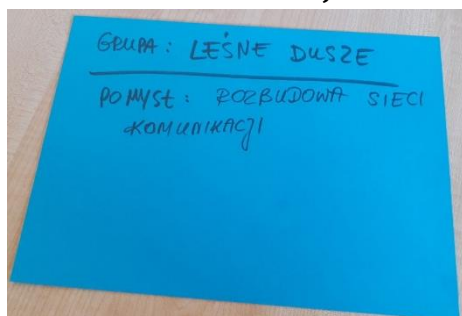 GRUPA: LEŚNE DUSZE
POMYSŁ: ROZBUDOWA SIECI
KOMUNIKACJI